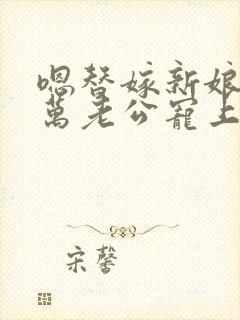 嗯替嫁新娘
萬老公寵上
宋馨